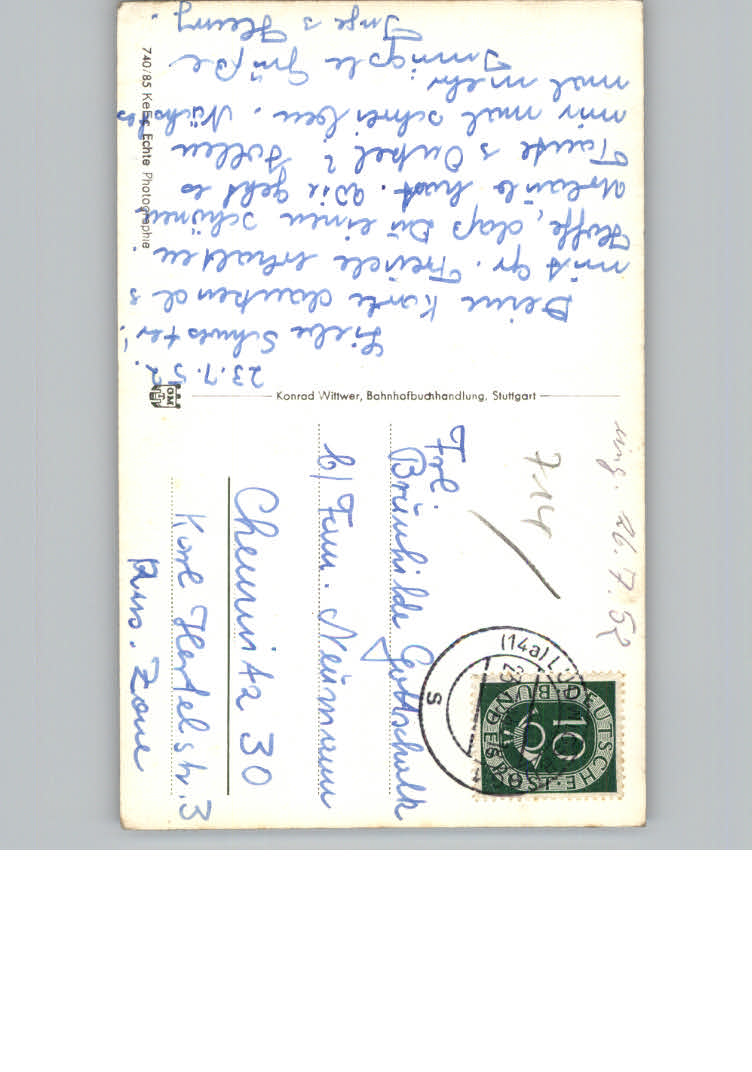 23.7.52.
Liebe Schwester!
Deine Karte dankend &
mit gr. Freude erhalten.
Hoffe, daß Du einen schönen
Urlaub hast. Wie geht es
Tante & Onkel? Sollen
mir mal schreiben. Nächstes
mal mehr.
Innigste Grüße
Inge & Henry.
740/85 KeEs Echte Photographie
Konrad Wittwer, Bahnhofbuchhandlung, Stuttgart
OM
eing. 26.7.52
714
Frl.
Brünhilde Gottschalk
b/ Fam. Neumann
Chemnitz 30
Karl Hertelstr. 3
Rus. Zone
(14a) LUD
23
S
DEUTSCHE
BUNDESPOST
10